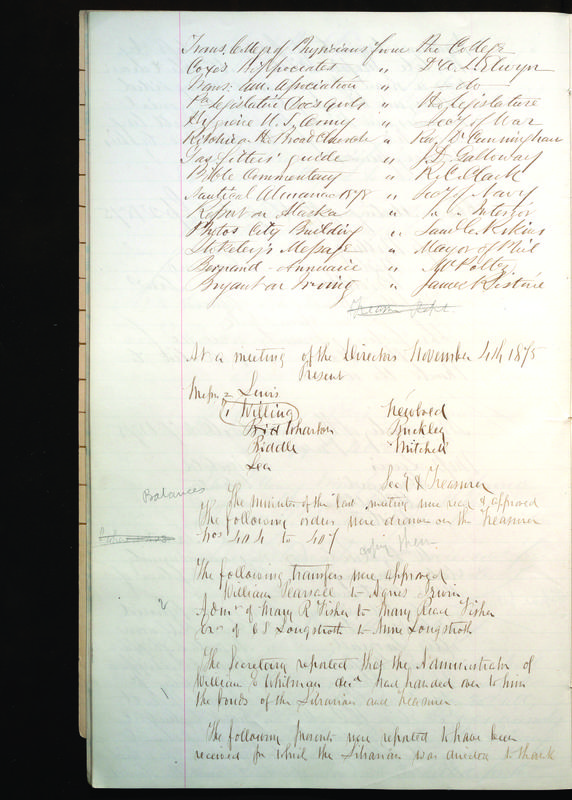 Trans. College of Physicians from the College
Coxe's Hippocrates " Dr A. L. Elwyn
Trans. Am. Association " do
Pa Legislative Docs " The Legislature
Hygiene U. S. Army " Secy of War
Ritchie on the Broad Church " Rev Dr Cunningham
Gas fitters' guide " J. D. Galloway
Bible Commentary " R. C. Clark
Nautical Almanac 1878 " Secy of Navy
Report on Alaska " " Interior
Photos City Building " Saml C. Perkins
Stokley's Message " Mayor of Phil
Annuaire " Mr
Bryant on Irving " James R
At a meeting of the Directors November 4th 1875
Present
Messrs Lewis
Willing
Wharton Buckley
Biddle Mitchell
Lea
Secy & Treasurer
Balances
The Minutes of the last meeting were read & approved
The following orders were drawn on the Treasurer
Nos 404 to 407
copy them
The following transfers were approved
William Pearsall to Agnes Irwin
Admr of Mary R Fisher to Mary Fisher
Exr of Longstroth to Anne Longstroth
The Secretary reported that the Administrator of
William E Whitman decd had handed over to him
the bonds of the Librarian and Treasurer
The following presents were reported to have been
received for which the Librarian was directed to thank